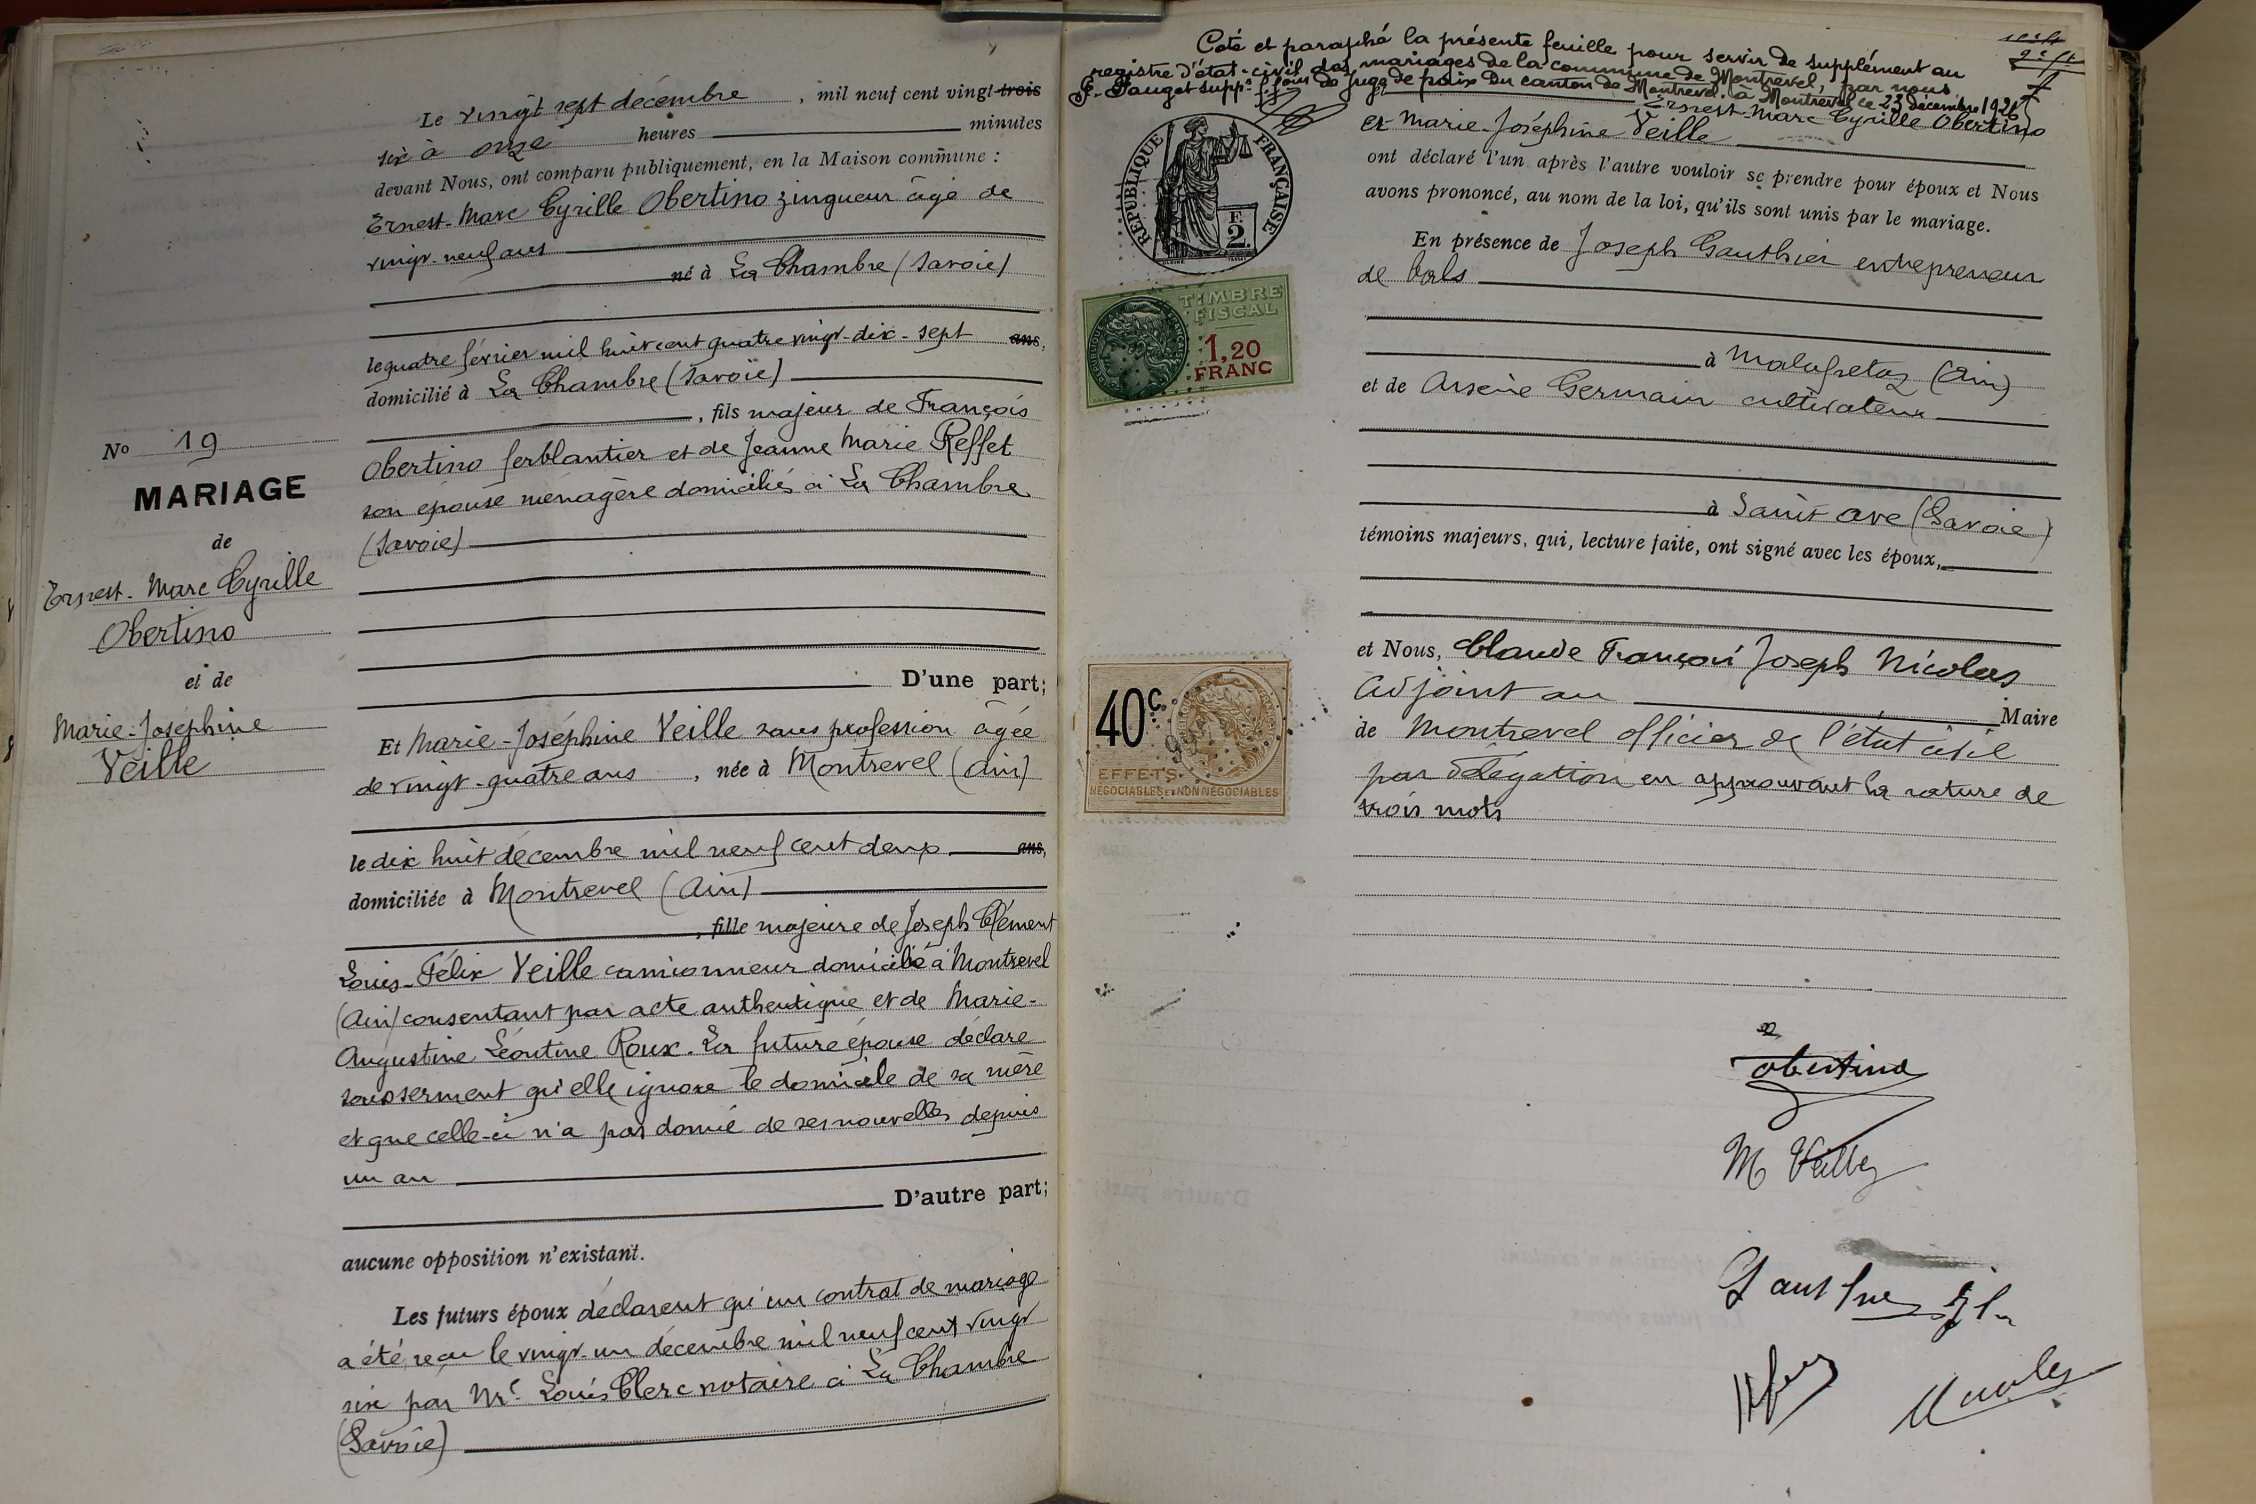 Le vingt sept décembre, mil neuf cent vingt trois
six à onze heures minutes
devant Nous, ont comparu publiquement, en la Maison commune :
Ernest-Marc Cyrille Obertino zingueur âgé de
vingt-neuf ans
né à La Chambre (Savoie)
le quatre février mil huit cent quatre vingt-dix-sept ans,
domicilié à La Chambre (Savoie)
, fils majeur de François
Obertino ferblantier et de Jeanne Marie Reffet
son épouse ménagère domiciliés à La Chambre
(Savoie)
D'une part;
Et Marie-Joséphine Veille sans profession âgée
de vingt-quatre ans, née à Montrevel (Ain)
le dix huit décembre mil neuf cent deux ans,
domiciliée à Montrevel (Ain)
, fille majeure de Joseph Clément
Louis-Félix Veille camionneur domicilié à Montrevel
(Ain) consentant par acte authentique et de Marie-
Augustine Léontine Roux. La future épouse déclare
sous serment qu'elle ignore le domicile de sa mère
et que celle-ci n'a pas donné de ses nouvelles depuis
un an
D'autre part;
aucune opposition n'existant.
Les futurs époux déclarent qu'un contrat de mariage
a été reçu le vingt-un décembre mil neuf cent vingt
six par Me Louis Clerc notaire à La Chambre
(Savoie)
No 19
MARIAGE
de
Ernest-Marc Cyrille
Obertino
et de
Marie-Joséphine
Veille
Coté et paraphé la présente feuille pour servir de supplément au
registre d'état-civil des mariages de la commune de Montrevel, par nous
F. Pauget suppt f. fons de Juge de paix du canton de Montrevel. à Montrevel ce 23 décembre 1926
Ernest-Marc Cyrille Obertino
et Marie-Joséphine Veille
ont déclaré l'un après l'autre vouloir se prendre pour époux et Nous
avons prononcé, au nom de la loi, qu'ils sont unis par le mariage.
En présence de Joseph Gauthier entrepreneur
de bals
à Malafretaz (Ain)
et de Arsène Germain cultivateur
à Saint Avre (Savoie)
témoins majeurs, qui, lecture faite, ont signé avec les époux,
et Nous, Claude François Joseph Nicolas
adjoint au Maire
de Montrevel officier de l'état civil
par délégation en approuvant la rature de
trois mots
RÉPUBLIQUE FRANÇAISE
F.
2.
TIMBRE
FISCAL
1,20
FRANC
40c
EFFETS
NÉGOCIABLES ET NON NÉGOCIABLES
Obertino
M Veille